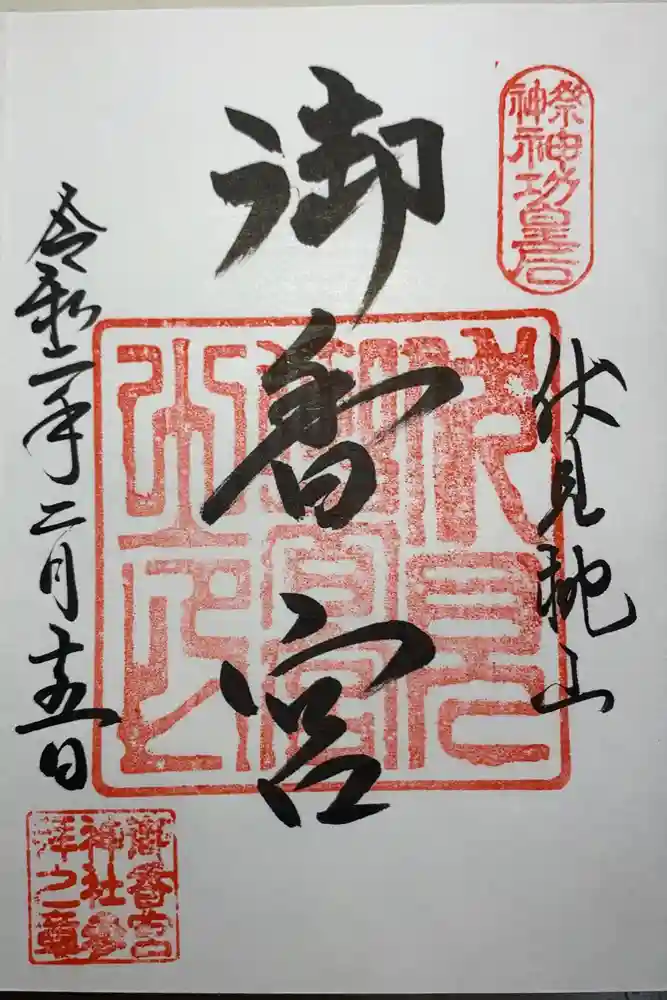 祭神
神功皇后
伏見桃山
御香宮
伏見
御香宮
之印
令和二年二月十五日
御香宮
神社参
拝之章